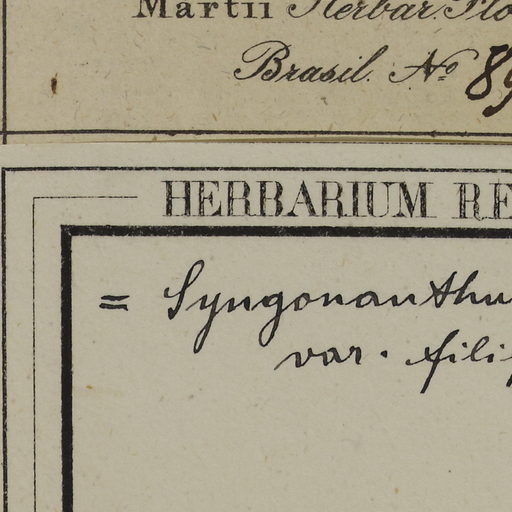 Martii Herbar. Flo
Brasil. No. 89
HERBARIUM RE
= Syngonanthu
var. fili